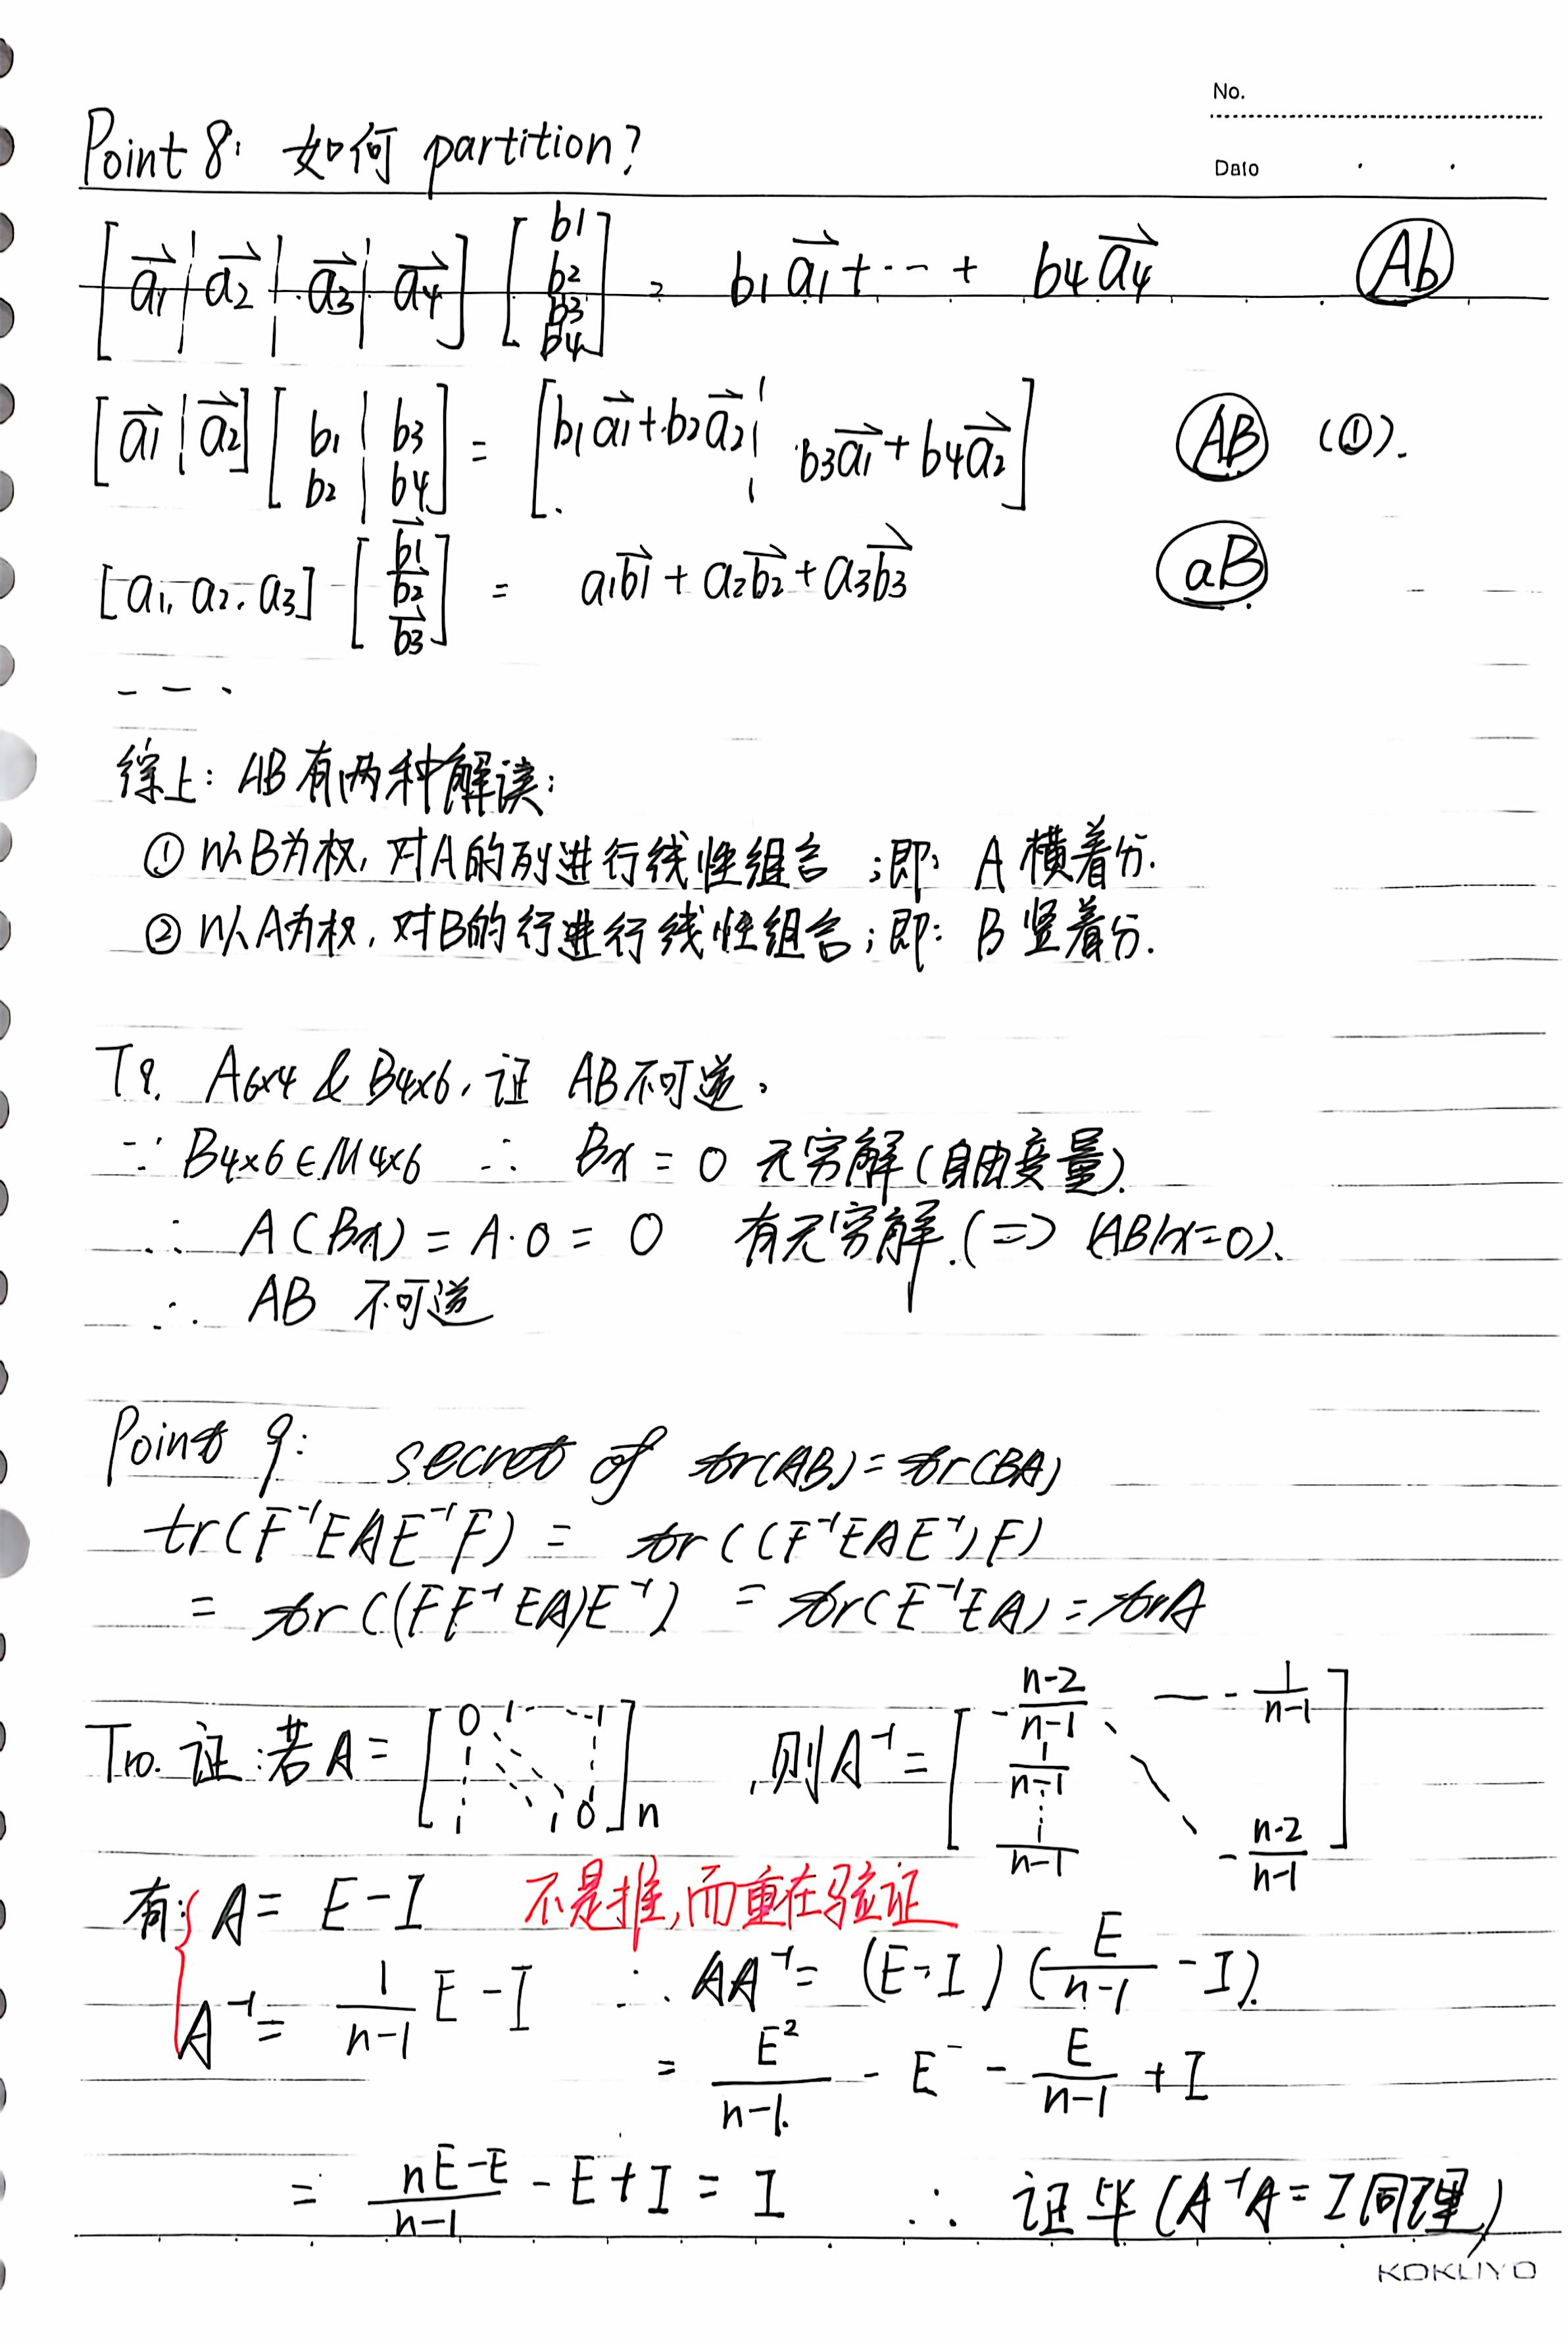 No.
Date
Point 8: 如何 partition?
[a1→ | a2→ | a3→ | a4→] [b1 b2 b3 b4] = b1a1→ + ⋯ + b4a4→ Ab
[a1→ | a2→] [b1 | b3 b2 | b4] = [b1a1→ + b2a2→ | b3a1→ + b4a2→] AB (①).
[a1, a2, a3] [b1→ b2→ b3→] = a1b1→ + a2b2→ + a3b3→ aB
- - -
综上: AB有两种解读:
① 以B为权, 对A的列进行线性组合; 即: A 横着分.
② 以A为权, 对B的行进行线性组合; 即: B 竖着分.
T9. A6×4 & B4×6, 证 AB不可逆.
∵ B4×6 ∈ M4×6 ∴ Bx = 0 无穷解(自由变量).
∴ A(Bx) = A·0 = 0 有无穷解. (=> (AB)x=0).
∴ AB 不可逆
Point 9: secret of tr(AB) = tr(BA)
tr(F⁻¹EAE⁻¹F) = tr((F⁻¹EAE⁻¹)F)
= tr((FF⁻¹EA)E⁻¹) = tr(E⁻¹EA) = trA
T10. 证: 若A = [0 1 ⋯ 1 1 ⋱ ⋮ 1 ⋯ 1 0]n, 则A⁻¹ = [-(n-2)/(n-1) ⋯ 1/(n-1) 1/(n-1) ⋱ ⋮ 1/(n-1) -(n-2)/(n-1)]
有: { A = E - I 不是推,而重在验证
A⁻¹ = 1/(n-1) E - I ∴ AA⁻¹ = (E-I)(E/(n-1) - I).
= E²/(n-1) - E - E/(n-1) + I
= (nE-E)/(n-1) - E + I = I ∴ 证毕 (A⁻¹A = I同理)
KOKUYO